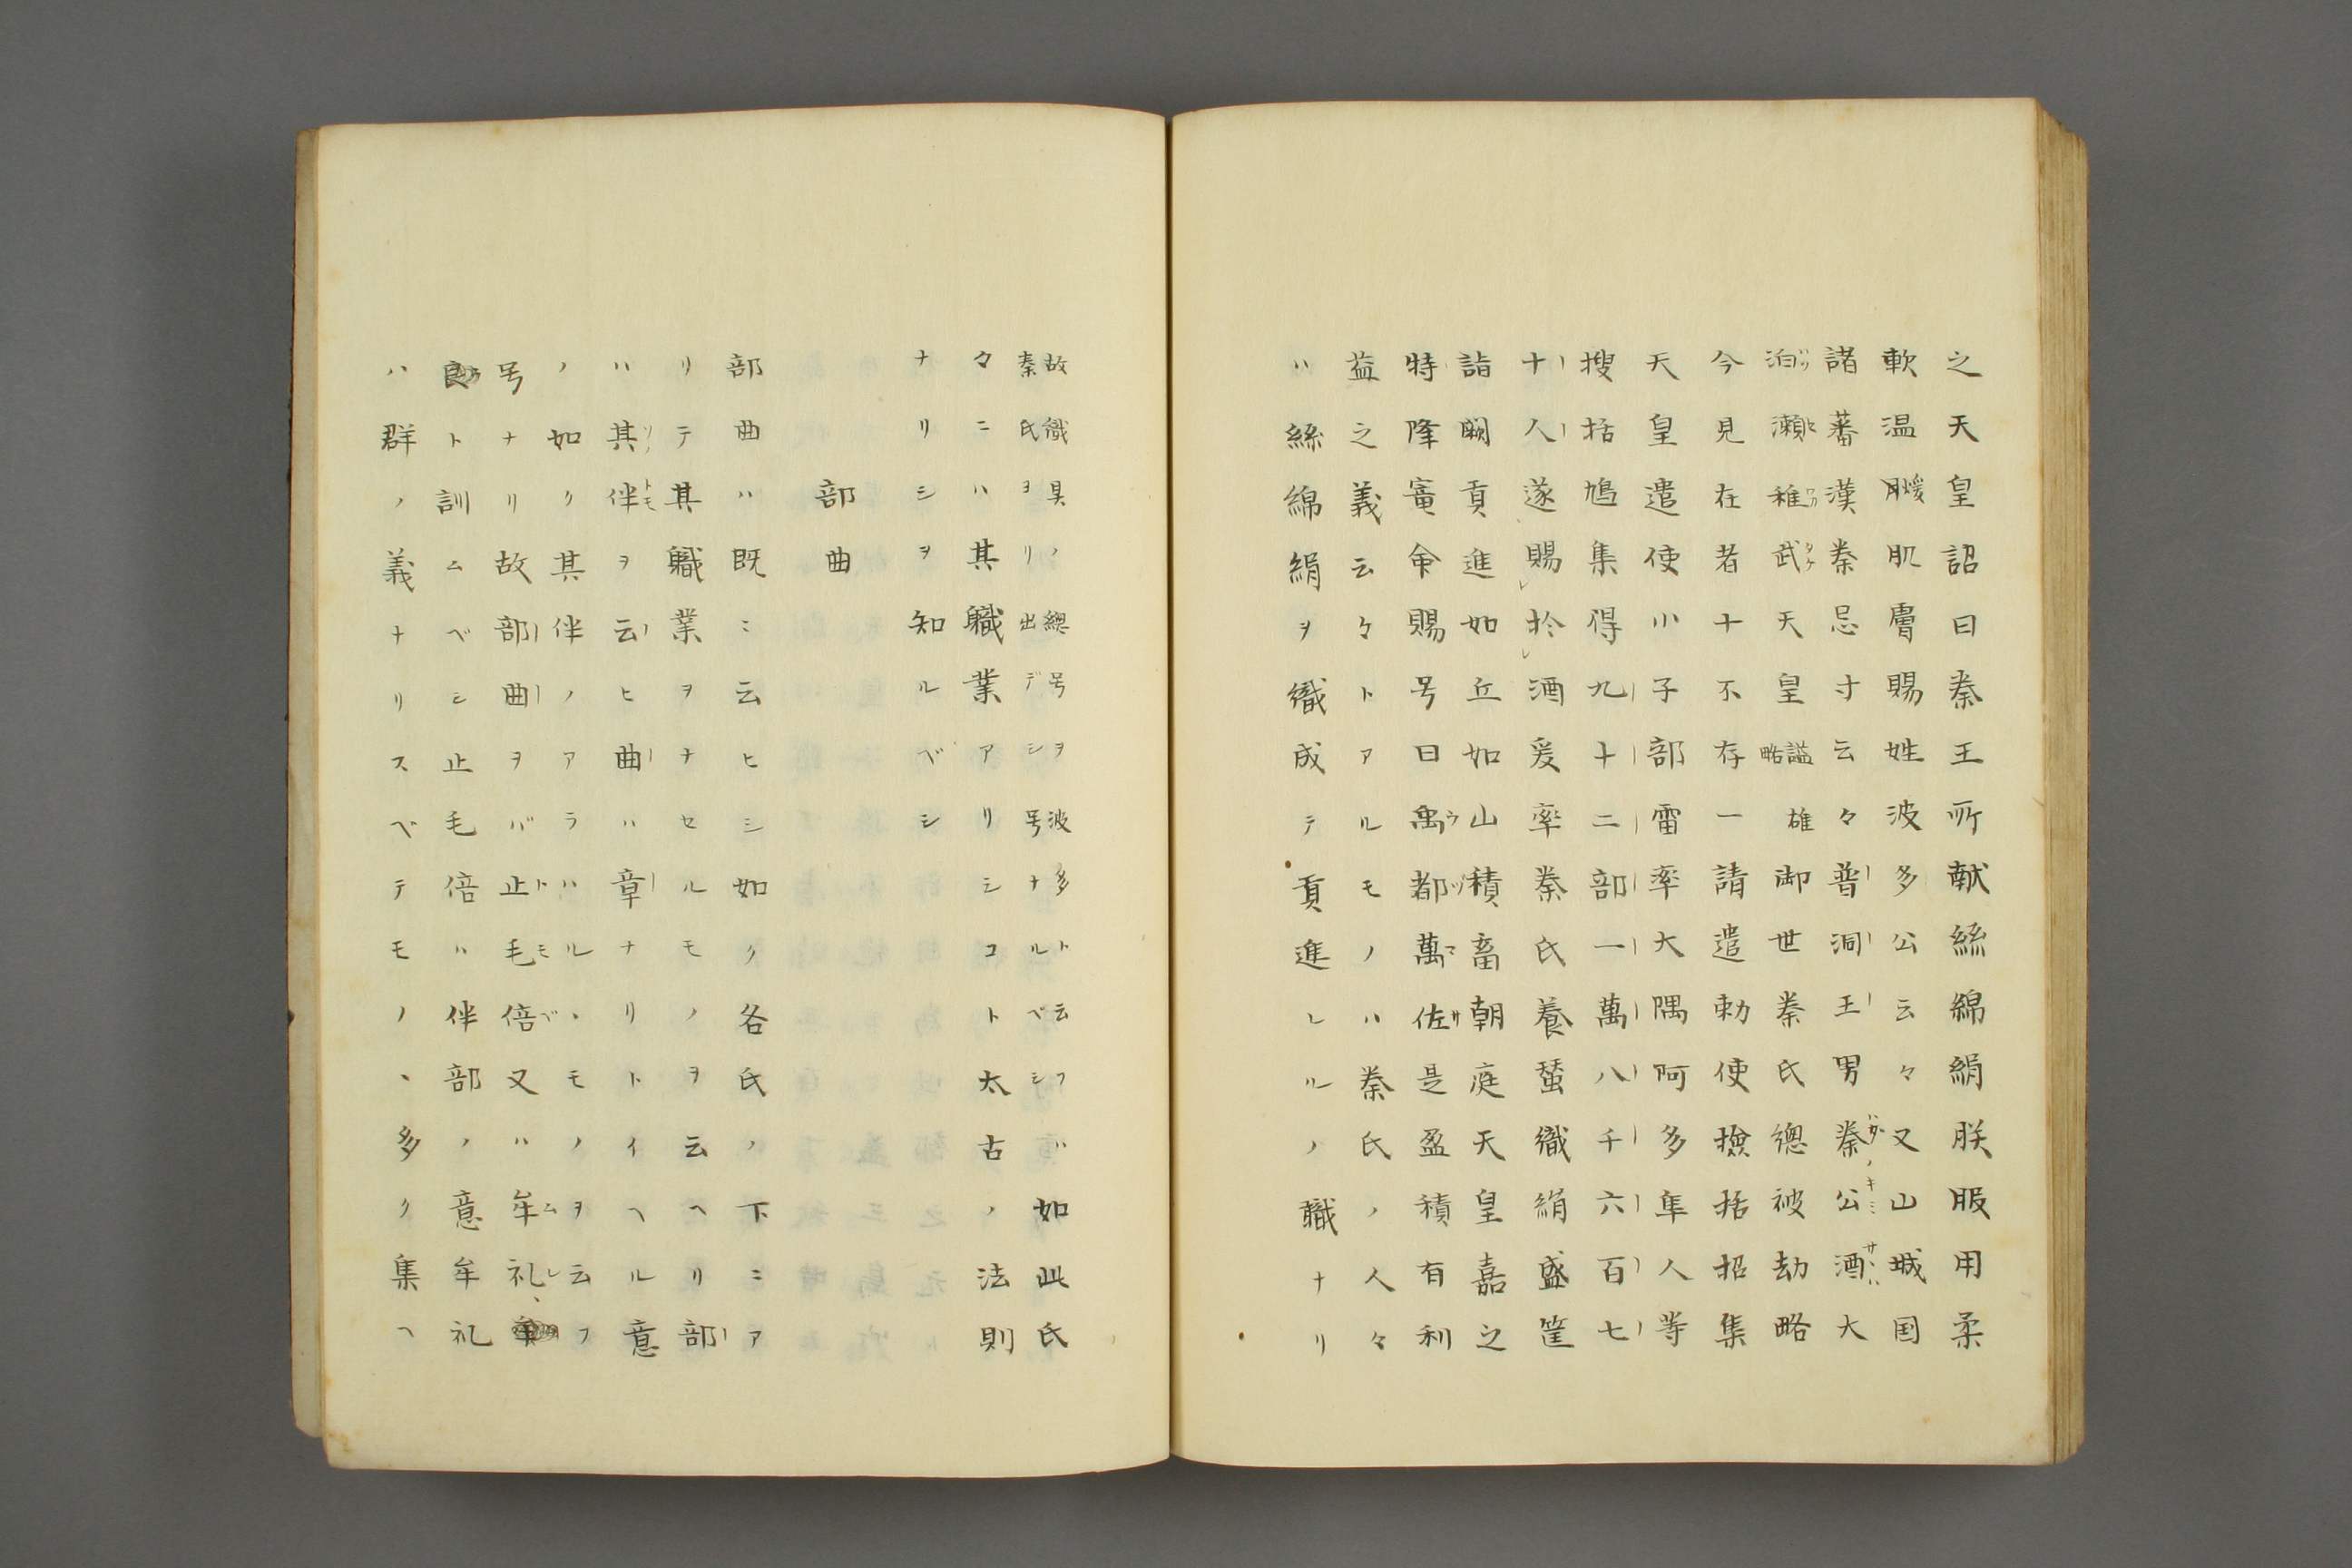 之天皇詔曰秦王所献絲綿絹朕服用柔
軟温煖肌膚賜姓波多公云々又山城国
諸蕃漢秦忌寸云々普洞王男秦公酒大
泊瀬稚武天皇謚雄略御世秦氏總被劫略
今見在者十不存一請遣勅使撿括招集
天皇遣使小子部雷率大隅阿多隼人等
搜括鳩集得九十二部一萬八千六百七
十人遂賜於酒爰率秦氏養蚕織絹盛筐
詣闕貢進如丘如山積畜朝庭天皇嘉之
特降寵命賜号曰禹都萬佐是盈積有利
益之義云々トアルモノハ秦氏ノ人々
ハ絲綿絹ヲ織成テ貢進レルノ職ナリ
故織具ノ總号ヲ波多ト云フ
秦氏ヨリ出デシ号ナルベシ
バ如此氏
々ニハ其職業アリシコト太古ノ法則
ナリシヲ知ルベシ
部曲
部曲ハ既ニ云ヒシ如ク各氏ノ下ニア
リテ其職業ヲナセルモノヲ云ヘリ部
ハ其伴ヲ云ヒ曲ハ章ナリトイヘル意
ノ如ク其伴ノアラハルヽモノヲ云フ
号ナリ故部曲ヲバ止毛倍又ハ牟礼、
良ト訓ムベシ止毛倍ハ伴部ノ意牟礼
ハ群ノ義ナリスベテモノヽ多ク集ヘ